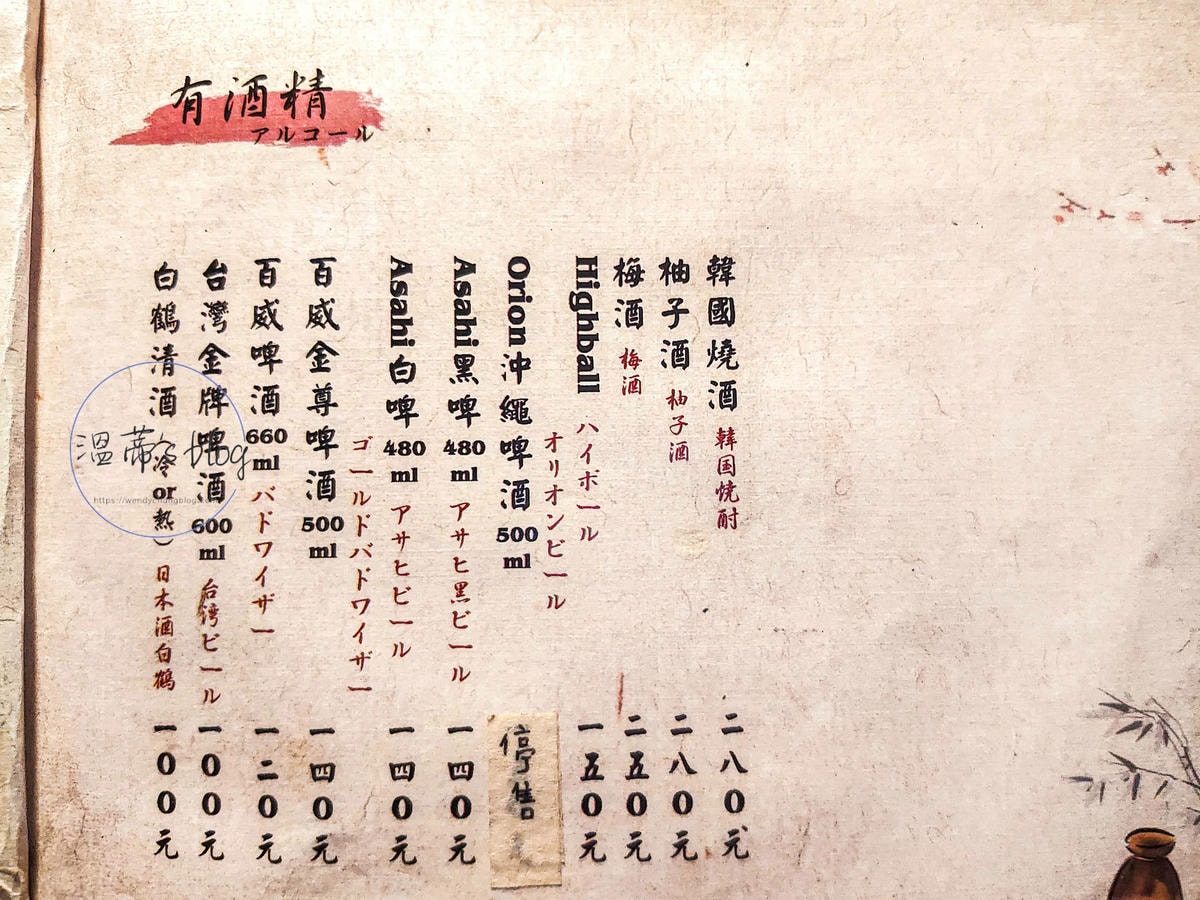 有酒精
アルコール
韓國燒酒 韓国焼酎 二八0元
柚子酒 柚子酒 二八0元
梅酒 梅酒 二五0元
Highball ハイボール 一五0元
Orion沖繩啤酒500ml オリオンビール 停售
Asahi黑啤480ml アサヒ黒ビール 一四0元
Asahi白啤480ml アサヒビール 一四0元
百威金尊啤酒500ml ゴールドバドワイザー 一四0元
百威啤酒660ml バドワイザー 一二0元
台灣金牌啤酒600ml 台湾ビール 一00元
白鶴清酒(冷or熱) 日本酒白鶴 一00元
溫蒂's blog
https://wendychungblog.com